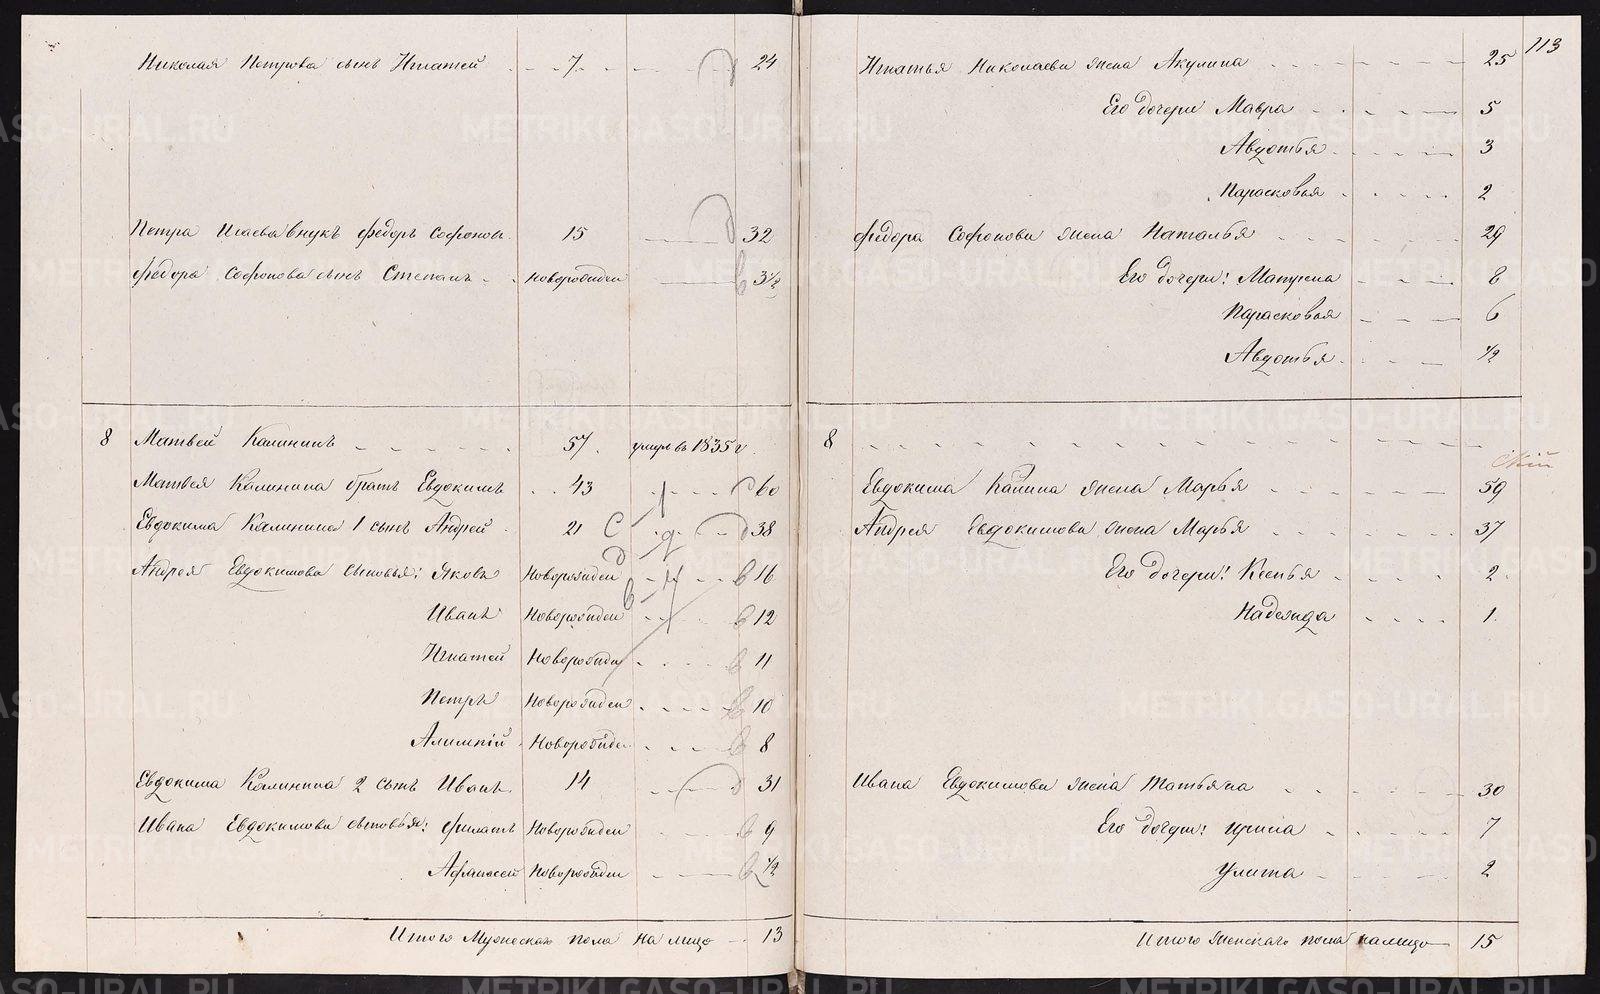 Николая Петрова сынъ Игнатей 7 24
Петра Исаева внукъ Федоръ Софронов 15 32
Федора Софронова сынъ Степанъ новорожден 3½
8 Матвей Калининъ 57 умеръ в 1835 г
Матвея Калинина братъ Евдокимъ 43 60
Евдокима Калинина 1 сынъ Андрей 21 38
Андрея Евдокимова сыновья: Яковъ Новорожден 16
Иванъ Новорожден 12
Игнатей Новорожден 11
Петръ Новорожден 10
Новорожден 8
Евдокима Калинина 2 сынъ Иванъ 14 31
Ивана Евдокимова сыновья: Филатъ Новорожден 9
Афанасей Новорожден 2½
Итого Мужескаго пола на лицо 13
113
Игнатья Николаева жена Акулина 25
Его дочери Мавра 5
Авдотья 3
Парасковья 2
Федора Софронова жена Наталья 29
Его дочери: Матрена 8
Парасковья 6
Авдотья ½
8
Евдокима жена Марья 59
Андрея Евдокимова жена Марья 37
Его дочери: Ксенья 2
Надежда 1
Ивана Евдокимова жена Татьяна 30
Его дочери: Ирина 7
Улита 2
Итого женскаго пола на лицо 15
METRIKI.GASO-URAL.RU